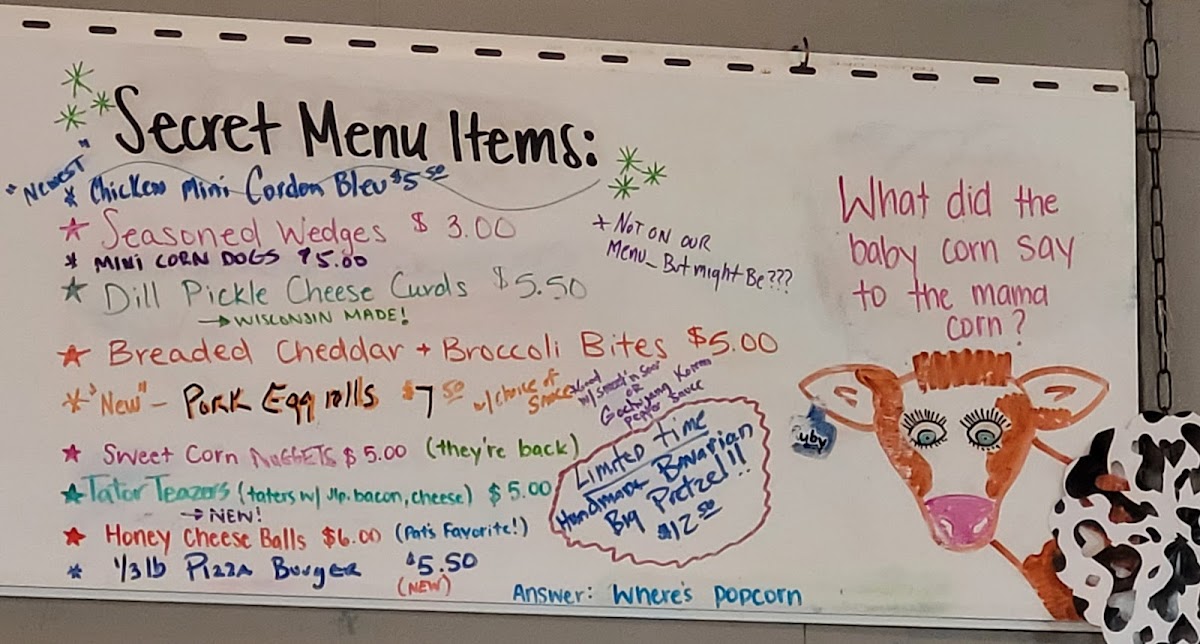 Secret Menu Items:
"Newest"
* Chicken Mini Cordon Bleu $5.50
Seasoned Wedges $3.00
* Mini Corn Dogs $5.00
Dill Pickle Cheese Curds $5.50
→ Wisconsin Made!
Breaded Cheddar + Broccoli Bites $5.00
"New" - Pork Egg rolls $7.50 w/choice of
Sweet Corn Nuggets $5.00 (they're back)
Tator Teazers (taters w/ Jlp. bacon, cheese) $5.00
→ New!
Honey Cheese Balls $6.00 (Pat's Favorite!)
* 1/3 lb Pizza Burger $5.50
(New)
* Not on our
Menu - But might Be???
or
Gochujang Korean
Pepper Sauce
Limited time
Handmade Bavarian
Big Pretzel!!
$12.50
What did the
baby corn say
to the mama
corn?
uby
Answer: Where's popcorn